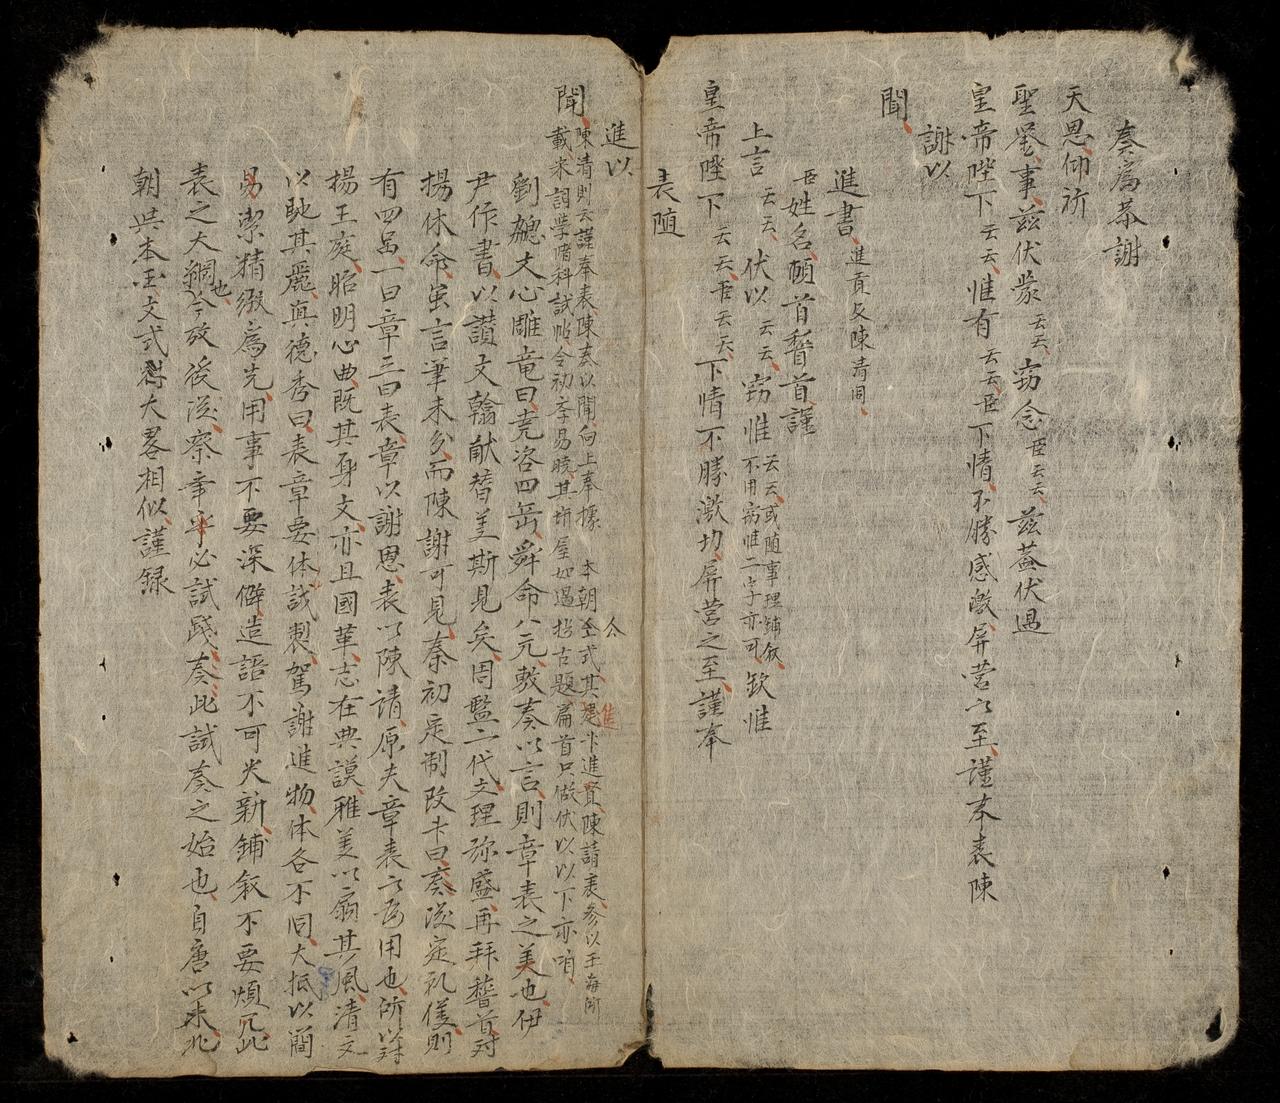 奏為恭謝
天恩仰祈
聖鑒事、茲伏蒙云云、窃念臣云云、茲蓋伏遇
皇帝陛下云云、惟有云云臣下情不勝感激屏营之至、謹奉表陳
謝以
聞、
進書、進貢及陳情同、
臣姓名頓首稽首謹
上言云云、伏以云云、窃惟云云、或随事理鋪叙、不用窃惟二字亦可、欽惟
皇帝陛下云云、臣云云、下情不勝激切屏营之至、謹奉
表随
進以
聞、陳清則云謹奉表陳奏以聞、向上奉據本朝仝式、其進卡進賀陳請表参以玉海所
載宋詞學暗科試帖、令初孝易曉、其
如遇拈古題篇首只做伏以以下亦
劉勰文心雕竜曰尭咨四岳舜命八元敷奏以言則章表之美也伊
尹作書以讃文翰献替羙斯見矣、周監二代文理弥盛、再拜稽首対
揚休命、虽言筆未分、而陳謝可見、秦初定制改卡曰奏、漢定礼儀則
有四品、一曰章三曰表、章以謝恩、表以陳請、原夫章表之為用也、所以対
揚王庭、昭明心曲、既其身文、亦且國華、志在典謨、雅羙以扇其風、清文
以馳其麗、真德秀曰、表章要体試製、駕謝進物、体各不同、大抵以簡
易潔精緻為先、用事不要深僻、造語不可尖新、鋪叙不要煩冗此
表之大綱也、今攷後漢察辛乎必試践奏、此試奏之始也、自唐以来、此
朝与本王文式槩大畧相似、謹録